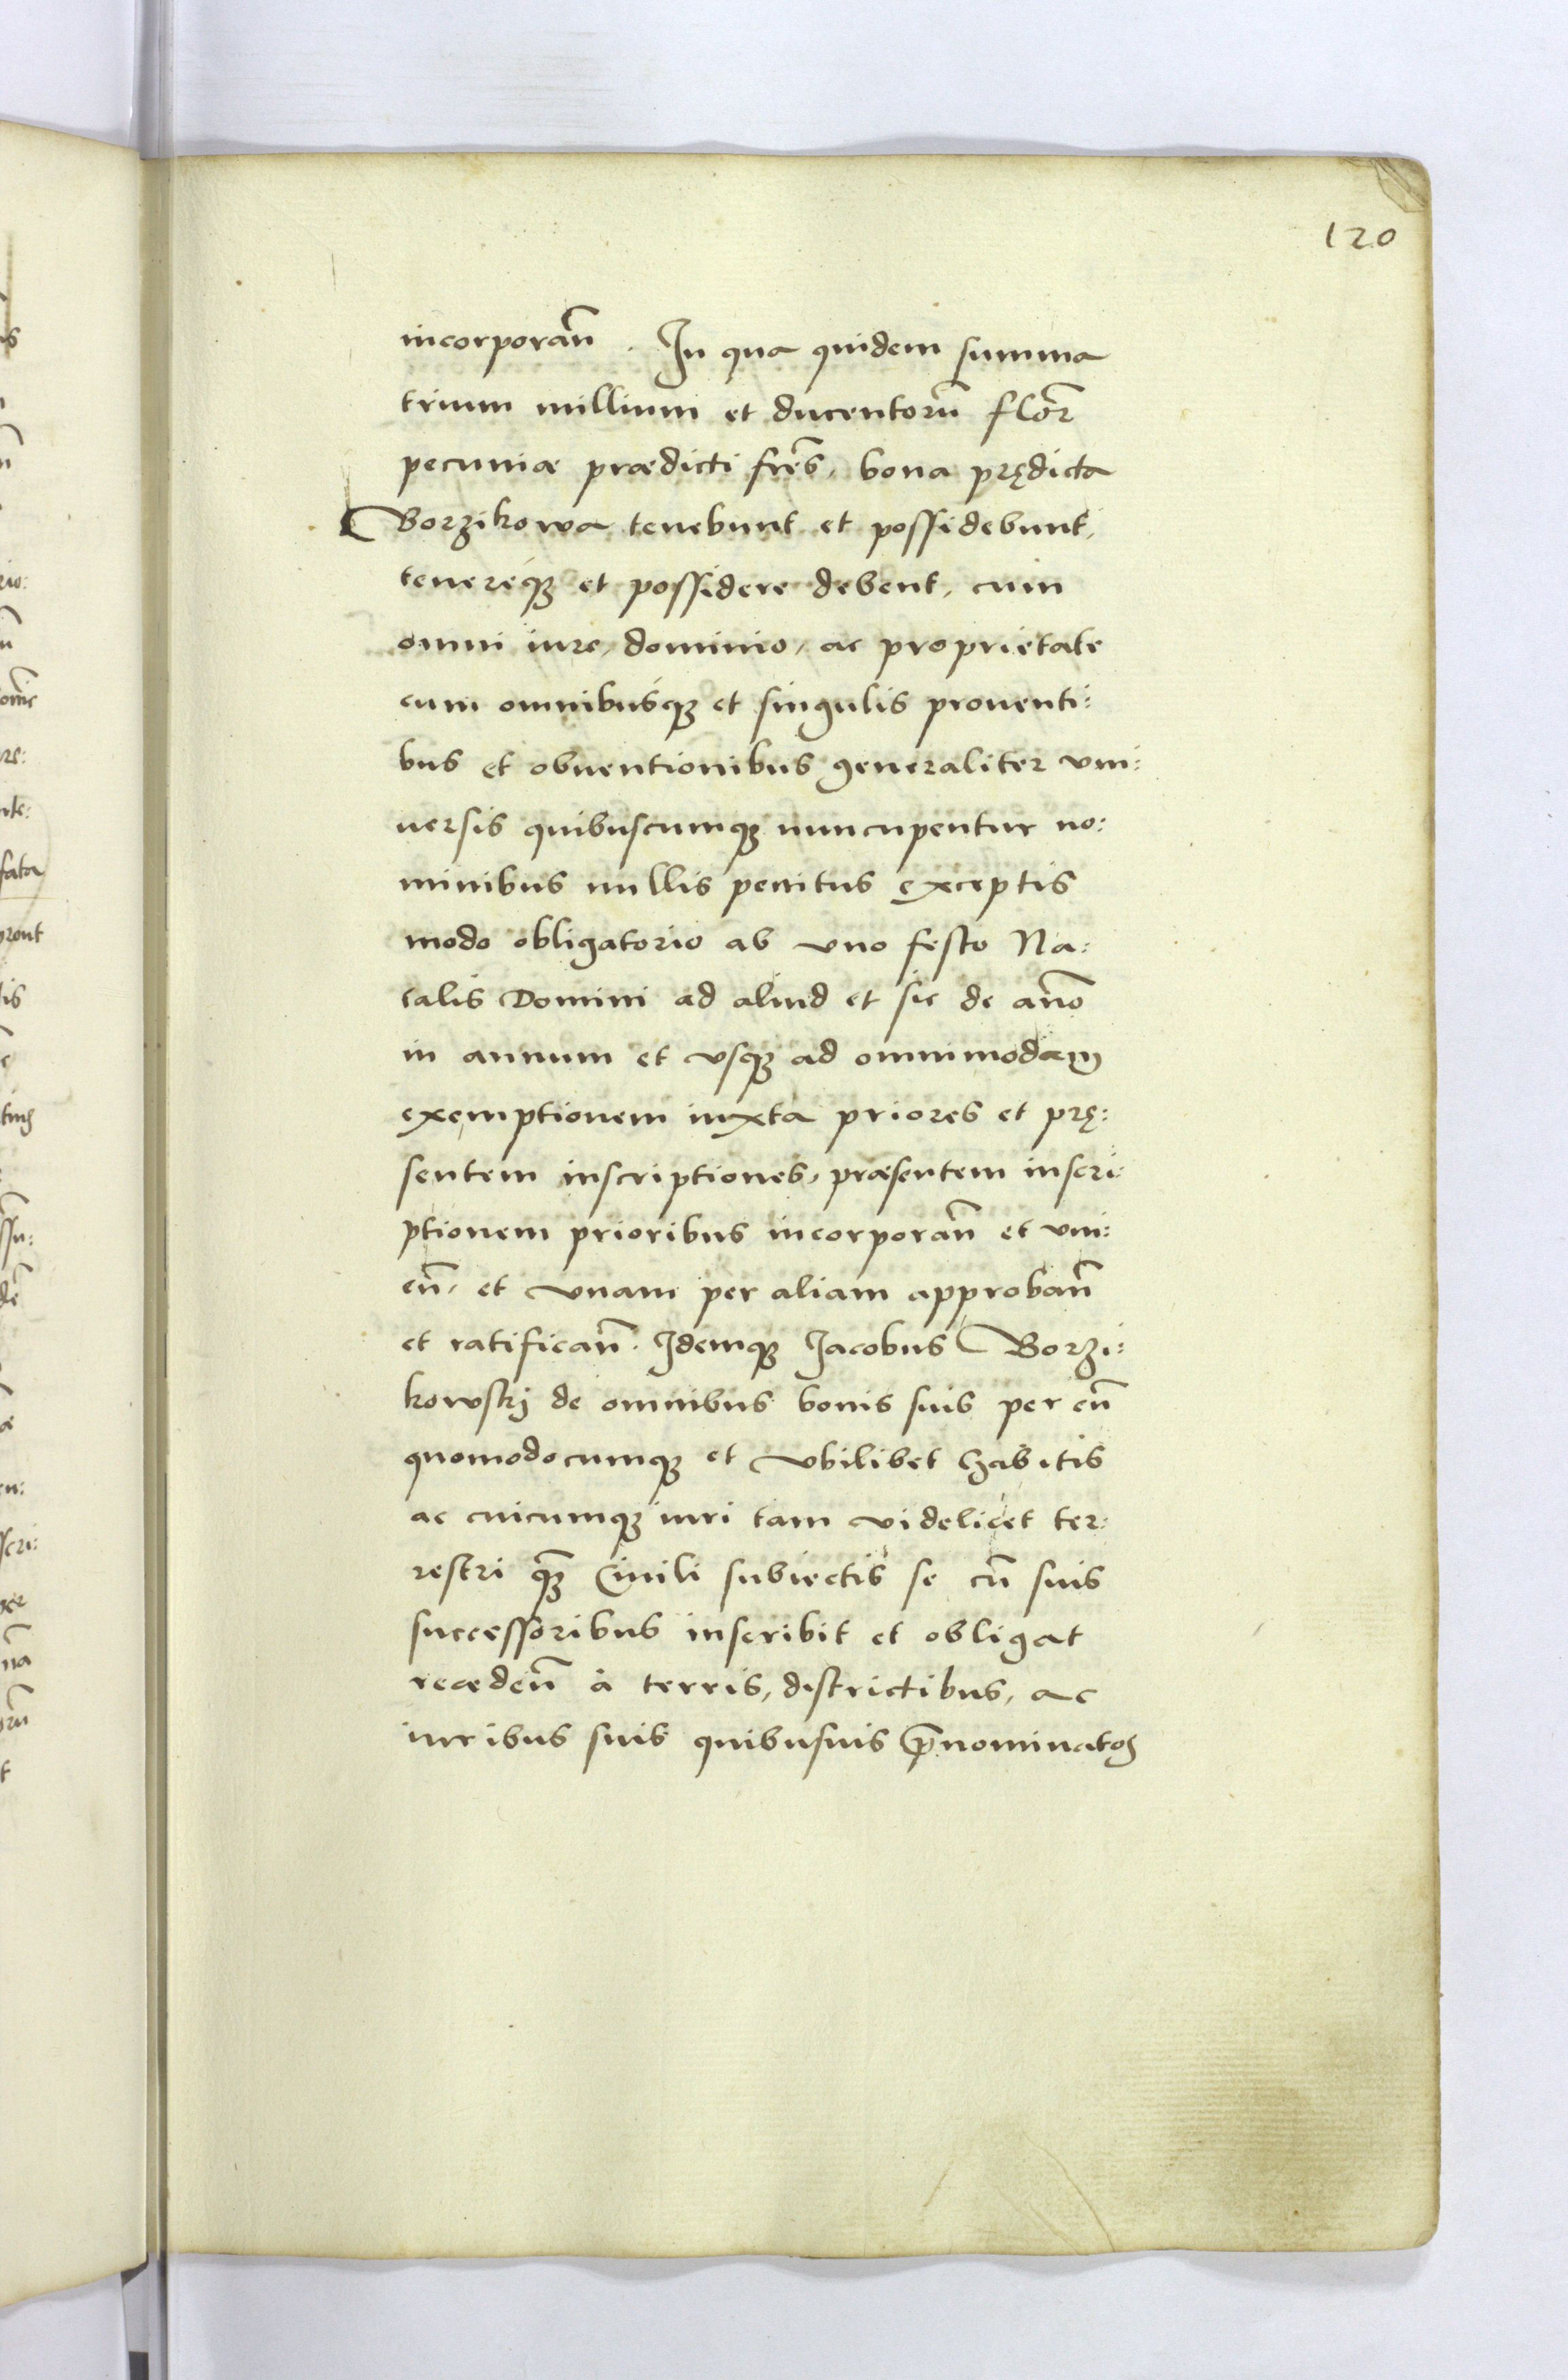 120
incorporan̄. In qua quidem summa
trium millium et ducentorū flor̄
pecuniæ prædicti fr̄es, bona prędicta
Borzikowa tenebunt et possidebunt,
tenereqꝫ et possidere debent, cum
omni iure, dominio, ac proprietate
cum omnibusqꝫ et singulis prouenti:
bus et obuentionibus generaliter vni:
uersis quibuscumqꝫ nuncupentur no:
minibus nullis penitus exceptis
modo obligatorio ab vno festo Na:
talis Domini ad aliud et sic de an̄o
in annum et vsqꝫ ad omnimodam
exemptionem iuxta priores et prę:
sentem inscriptiones, præsentem inscri:
ptionem prioribus incorporan̄ et vni:
en̄, et vnam per aliam approban̄
et ratifican̄. Idemqꝫ Jacobus Borzi:
kowskj de omnibus bonis suis per eū
quomodocumqꝫ et vbilibet habitis
ac cuicumqꝫ iuri tam videlicet ter:
restri qꝫ̄ Ciuili subiectis se cū suis
successoribus inscribit et obligat
recæden̄ à terris, districtibus, ac
iuribus suis quibusuis p̄nominatos